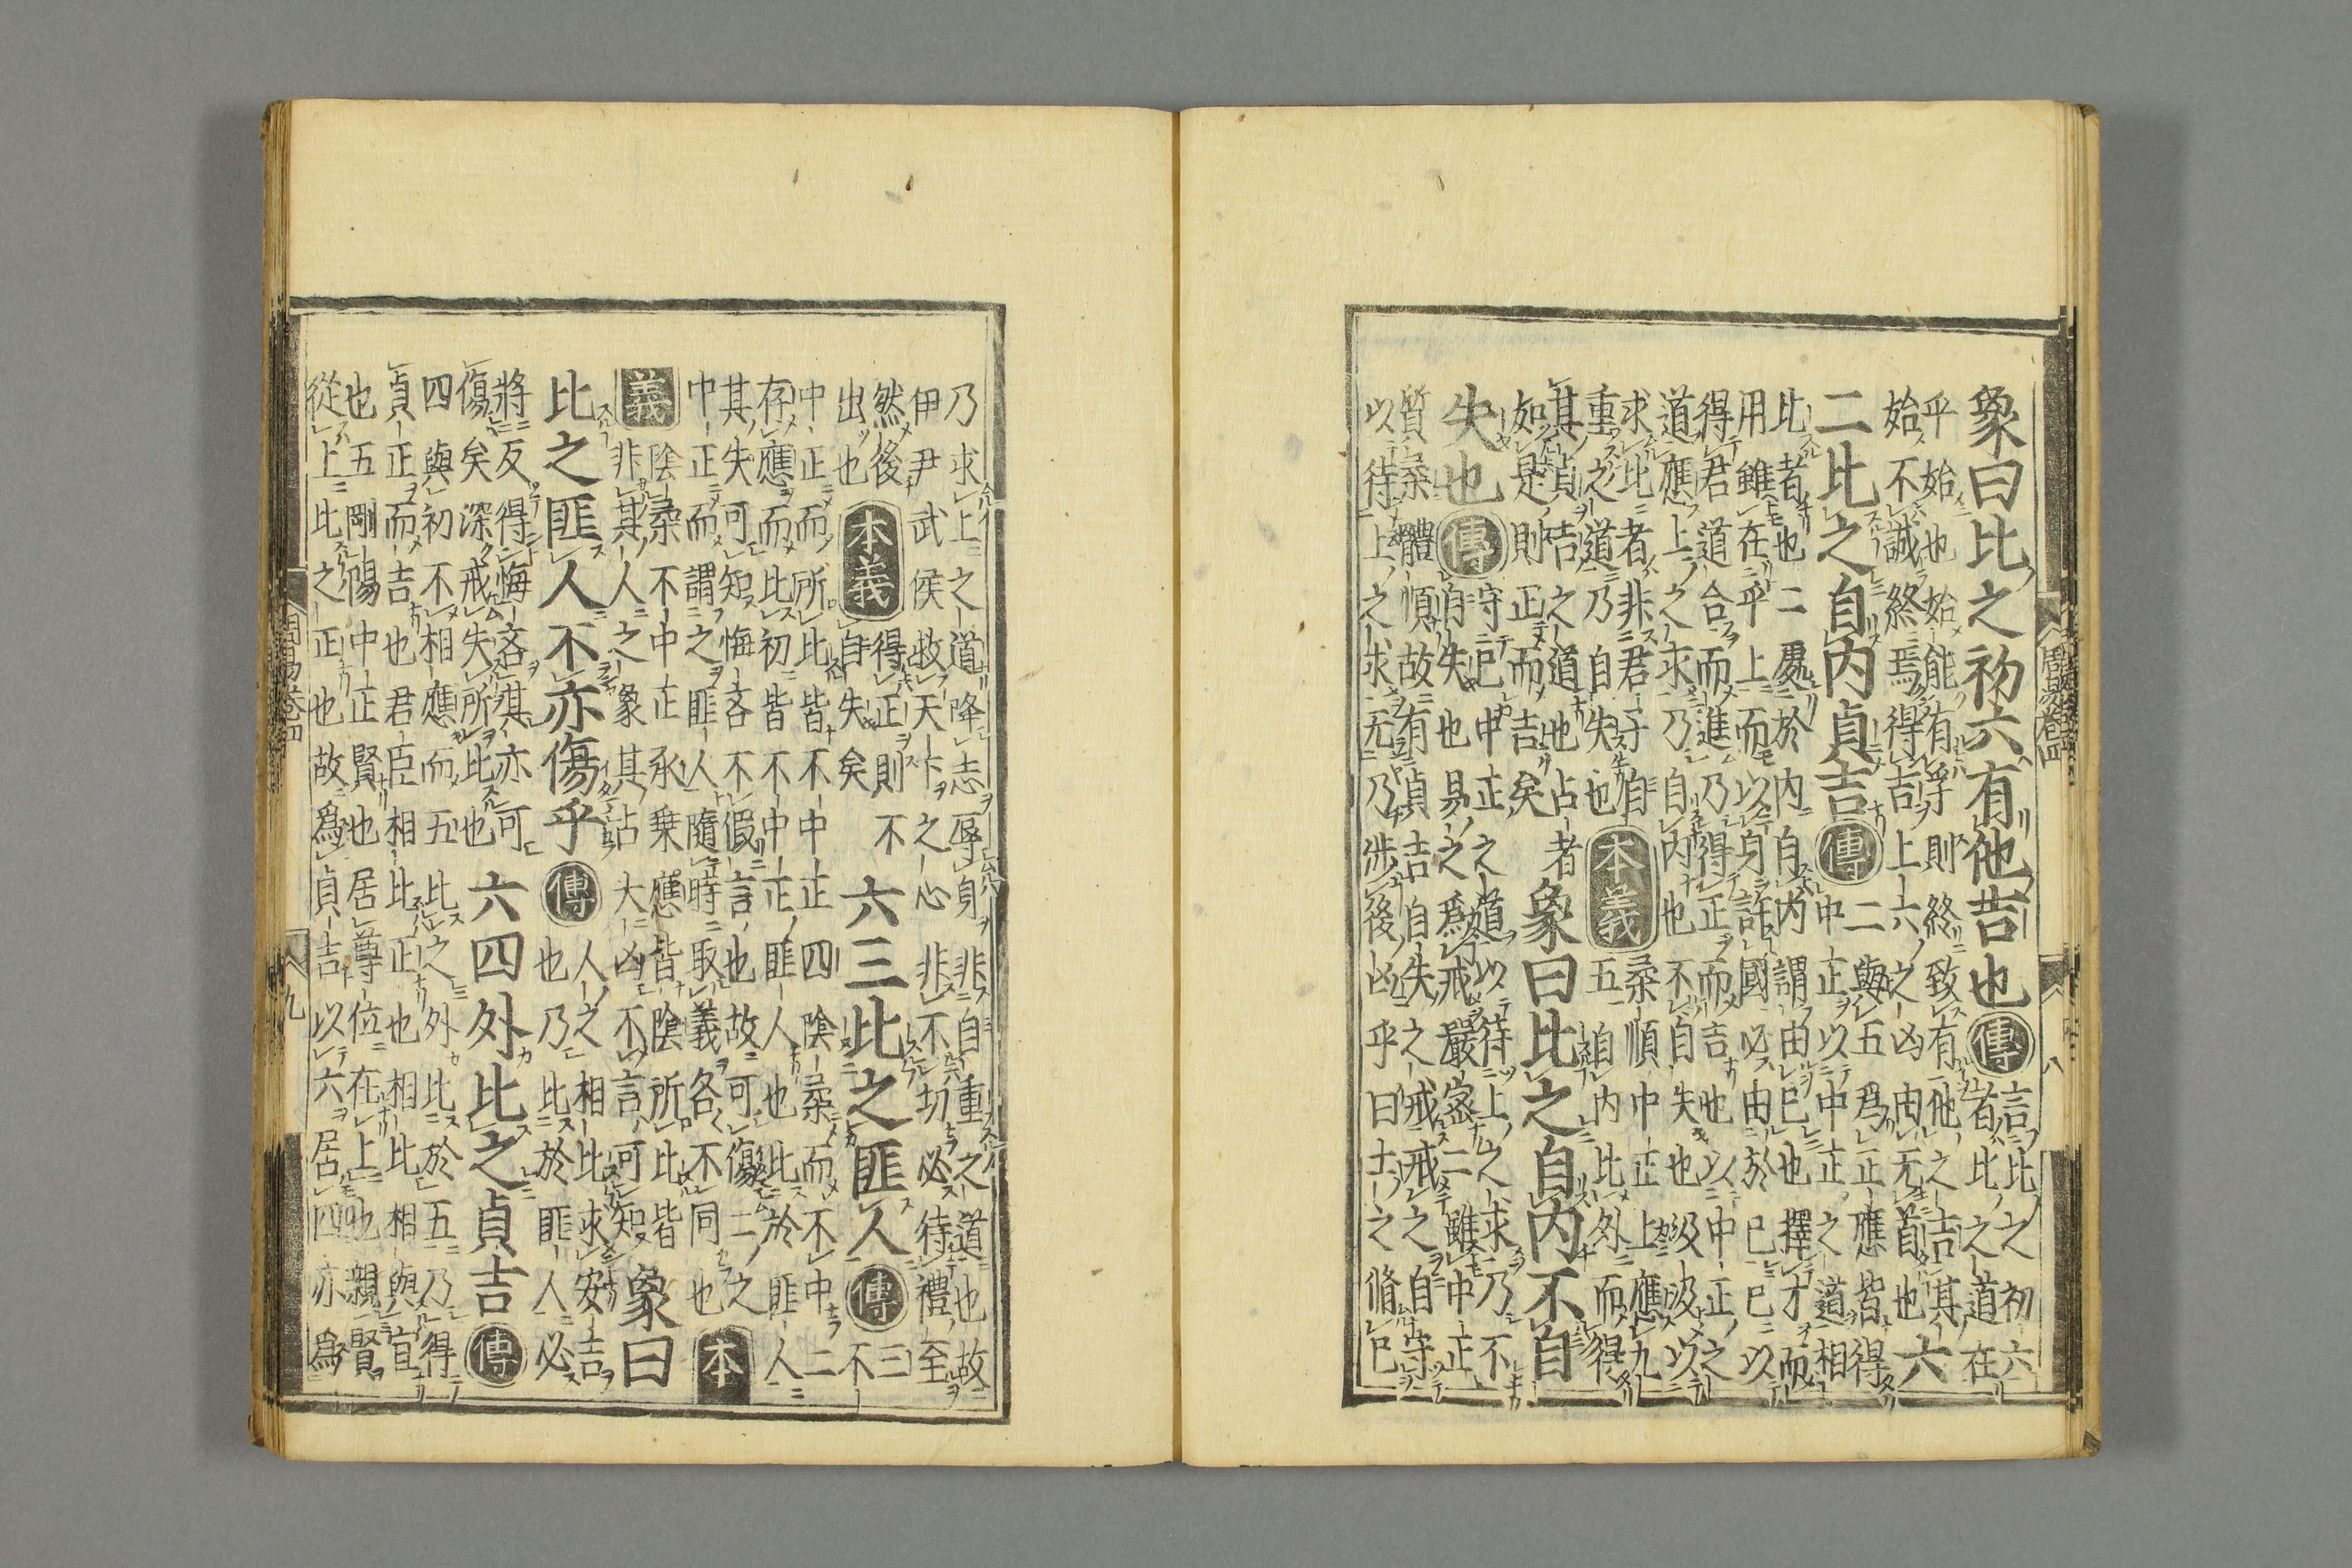 象曰比之初六有他吉也傳言比之初六
者比之道在
乎始也始能有孚則終致有他之吉其
始不誠終焉得吉上六之凶由无首也六
二比之自内貞吉傳二與五爲正應皆得
中正以中正之道相
比者也二處於内自内謂由已也擇才而
用雖在乎上而以身許國必由於已已以
得君道合而進乃得正而吉也以中正之
道應上之求乃自内也不自失也汲汲以
求比者非君子自
重之道乃自失也本義柔順中正上應九
五自内比外而得
其貞吉之道也占者
如是則正而吉矣象曰比之自内不自
失也傳守已中正之道以待上之求乃不
自失也易之爲戒嚴密二雖中正
質柔體順故有貞吉自失之戒戒之自守
以待上之求无乃涉後凶乎曰士之脩已
周易卷四
八
乃求上之道降志辱身非自重之道也故
伊尹武侯救天下之心非不切必待禮至
然後
出也本義得正則不
自失矣六三比之匪人傳三
不
中正而所比皆不中正四陰柔而不中二
存應而比初皆不中正匪人也比於匪人
其失可知悔吝不假言也故可傷二之
中正而謂之匪人隨時取義各不同也本
義陰柔不中正承乗應皆陰所比皆
非其人之象其占大凶不言可知象曰
比之匪人不亦傷乎傳人之相比求安吉
也乃比於匪人必
將反得悔吝其亦可
傷矣深戒失所比也六四外比之貞吉傳
四與初不相應而五比之外比於五乃得
貞正而吉也君臣相比正也相比相與宜
也五剛陽中正賢也居尊位在上也親賢
從上比之正也故爲貞吉以六居四亦爲
周易卷四
九